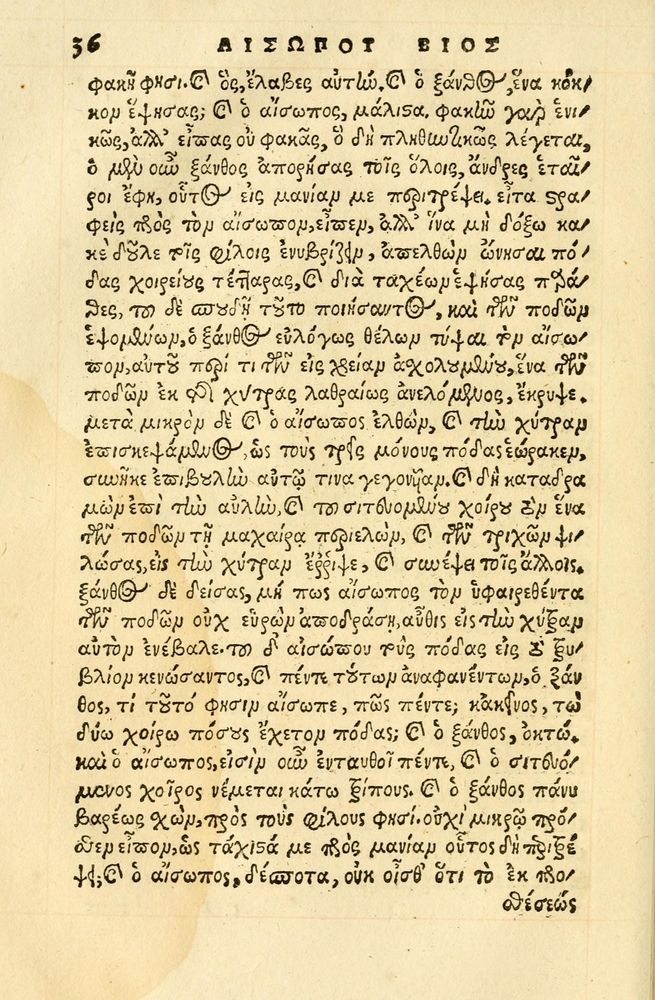 36 ΑΙΣΩΠΟΥ ΒΙΟΣ
φακῆ φησι. καὶ ὃς, ἔλαβες αὐτίω. καὶ ὁ ξάνθος, ἕνα κόκ/
κον ἕψησας; καὶ ὁ αἴσωπος, μάλιστα. φακίω γὰρ ἑνι/
κῶς, ἀλλ' εἶπας οὐ φακᾶς, ὃ δὴ πληθωτικῶς λέγεται,
ὁ μὲν οὖν ξάνθος ἀπορήσας τοῖς ὅλοις, ἄνδρες ἑταῖ/
ροι ἔφη, οὗτος εἰς μανίαν με περιτρέψει. εἶτα στρα/
φεὶς πρὸς τὸν αἴσωπον, εἶπεν, ἀλλ' ἵνα μὴ δόξω κα/
κὲ δοῦλε τοῖς φίλοις ἐνυβρίζειν, ἀπελθὼν ὤνησαι πό/
δας χοιρείους τέτταρας, καὶ διὰ ταχέων ἑψήσας παρά/
θες, τοῦ δὲ σπουδῇ τοῦτο ποιήσαντος, καὶ τῶν ποδῶν
ἑψομένων, ὁ ξάνθος εὐλόγως θέλων τύψαι τὸν αἴσω/
πον, αὐτοῦ περί τι τῶν εἰς χρείαν ἀσχολουμένου, ἕνα τῶν
ποδῶν ἐκ τῆς χύτρας λαθραίως ἀνελόμενος, ἔκρυψε.
μετὰ μικρὸν δὲ καὶ ὁ αἴσωπος ἐλθὼν, καὶ τὴν χύτραν
ἐπισκεψάμενος, ὡς τοὺς τρεῖς μόνους πόδας ἑώρακεν,
συνῆκε ἐπιβουλὴν αὐτῷ τινα γεγονῆαν. καὶ δὴ καταδρα
μὼν ἐπὶ τὴν αὐλὴν, καὶ τοῦ σιτευομένου χοίρου τὸν ἕνα
τῶν ποδῶν τῇ μαχαίρᾳ περιελὼν, καὶ τῶν τριχῶν ψι/
λώσας, εἰς τὴν χύτραν ἔῤῥιψε, καὶ συνέψει τοῖς ἄλλοις.
ξάνθος δὲ δείσας, μή πως αἴσωπος τὸν ὑφαιρεθέντα
τῶν ποδῶν οὐχ εὑρὼν ἀποδράσῃ, αὖθις εἰς τὴν χύτραν
αὐτὸν ἐνέβαλε. τοῦ δ' αἰσώπου τοὺς πόδας εἰς τὸ τρυ/
βλίον κενώσαντος, καὶ πέντε τούτων ἀναφανέντων, ὁ ξάν
θος, τί τοῦτό φησιν αἴσωπε, πῶς πέντε; κἀκεῖνος, τὼ
δύω χοίρω πόσους ἔχετον πόδας; καὶ ὁ ξάνθος, ὀκτώ.
καὶ ὁ αἴσωπος, εἰσὶν οὖν ἐνταυθοῖ πέντε, καὶ ὁ σιτευό/
μενος χοῖρος νέμεται κάτω τρίπους. καὶ ὁ ξάνθος πάνυ
βαρέως χὼν, πρὸς τοὺς φίλους φησί. οὐχὶ μικρῷ πρό/
θεν εἶπον, ὡς τάχιστά με πρὸς μανίαν οὗτος δὴ περιτρέ
ψει; καὶ ὁ αἴσωπος, δέσποτα, οὐκ οἶσθ' ὅτι τὸ ἐκ προ/
θέσεώς